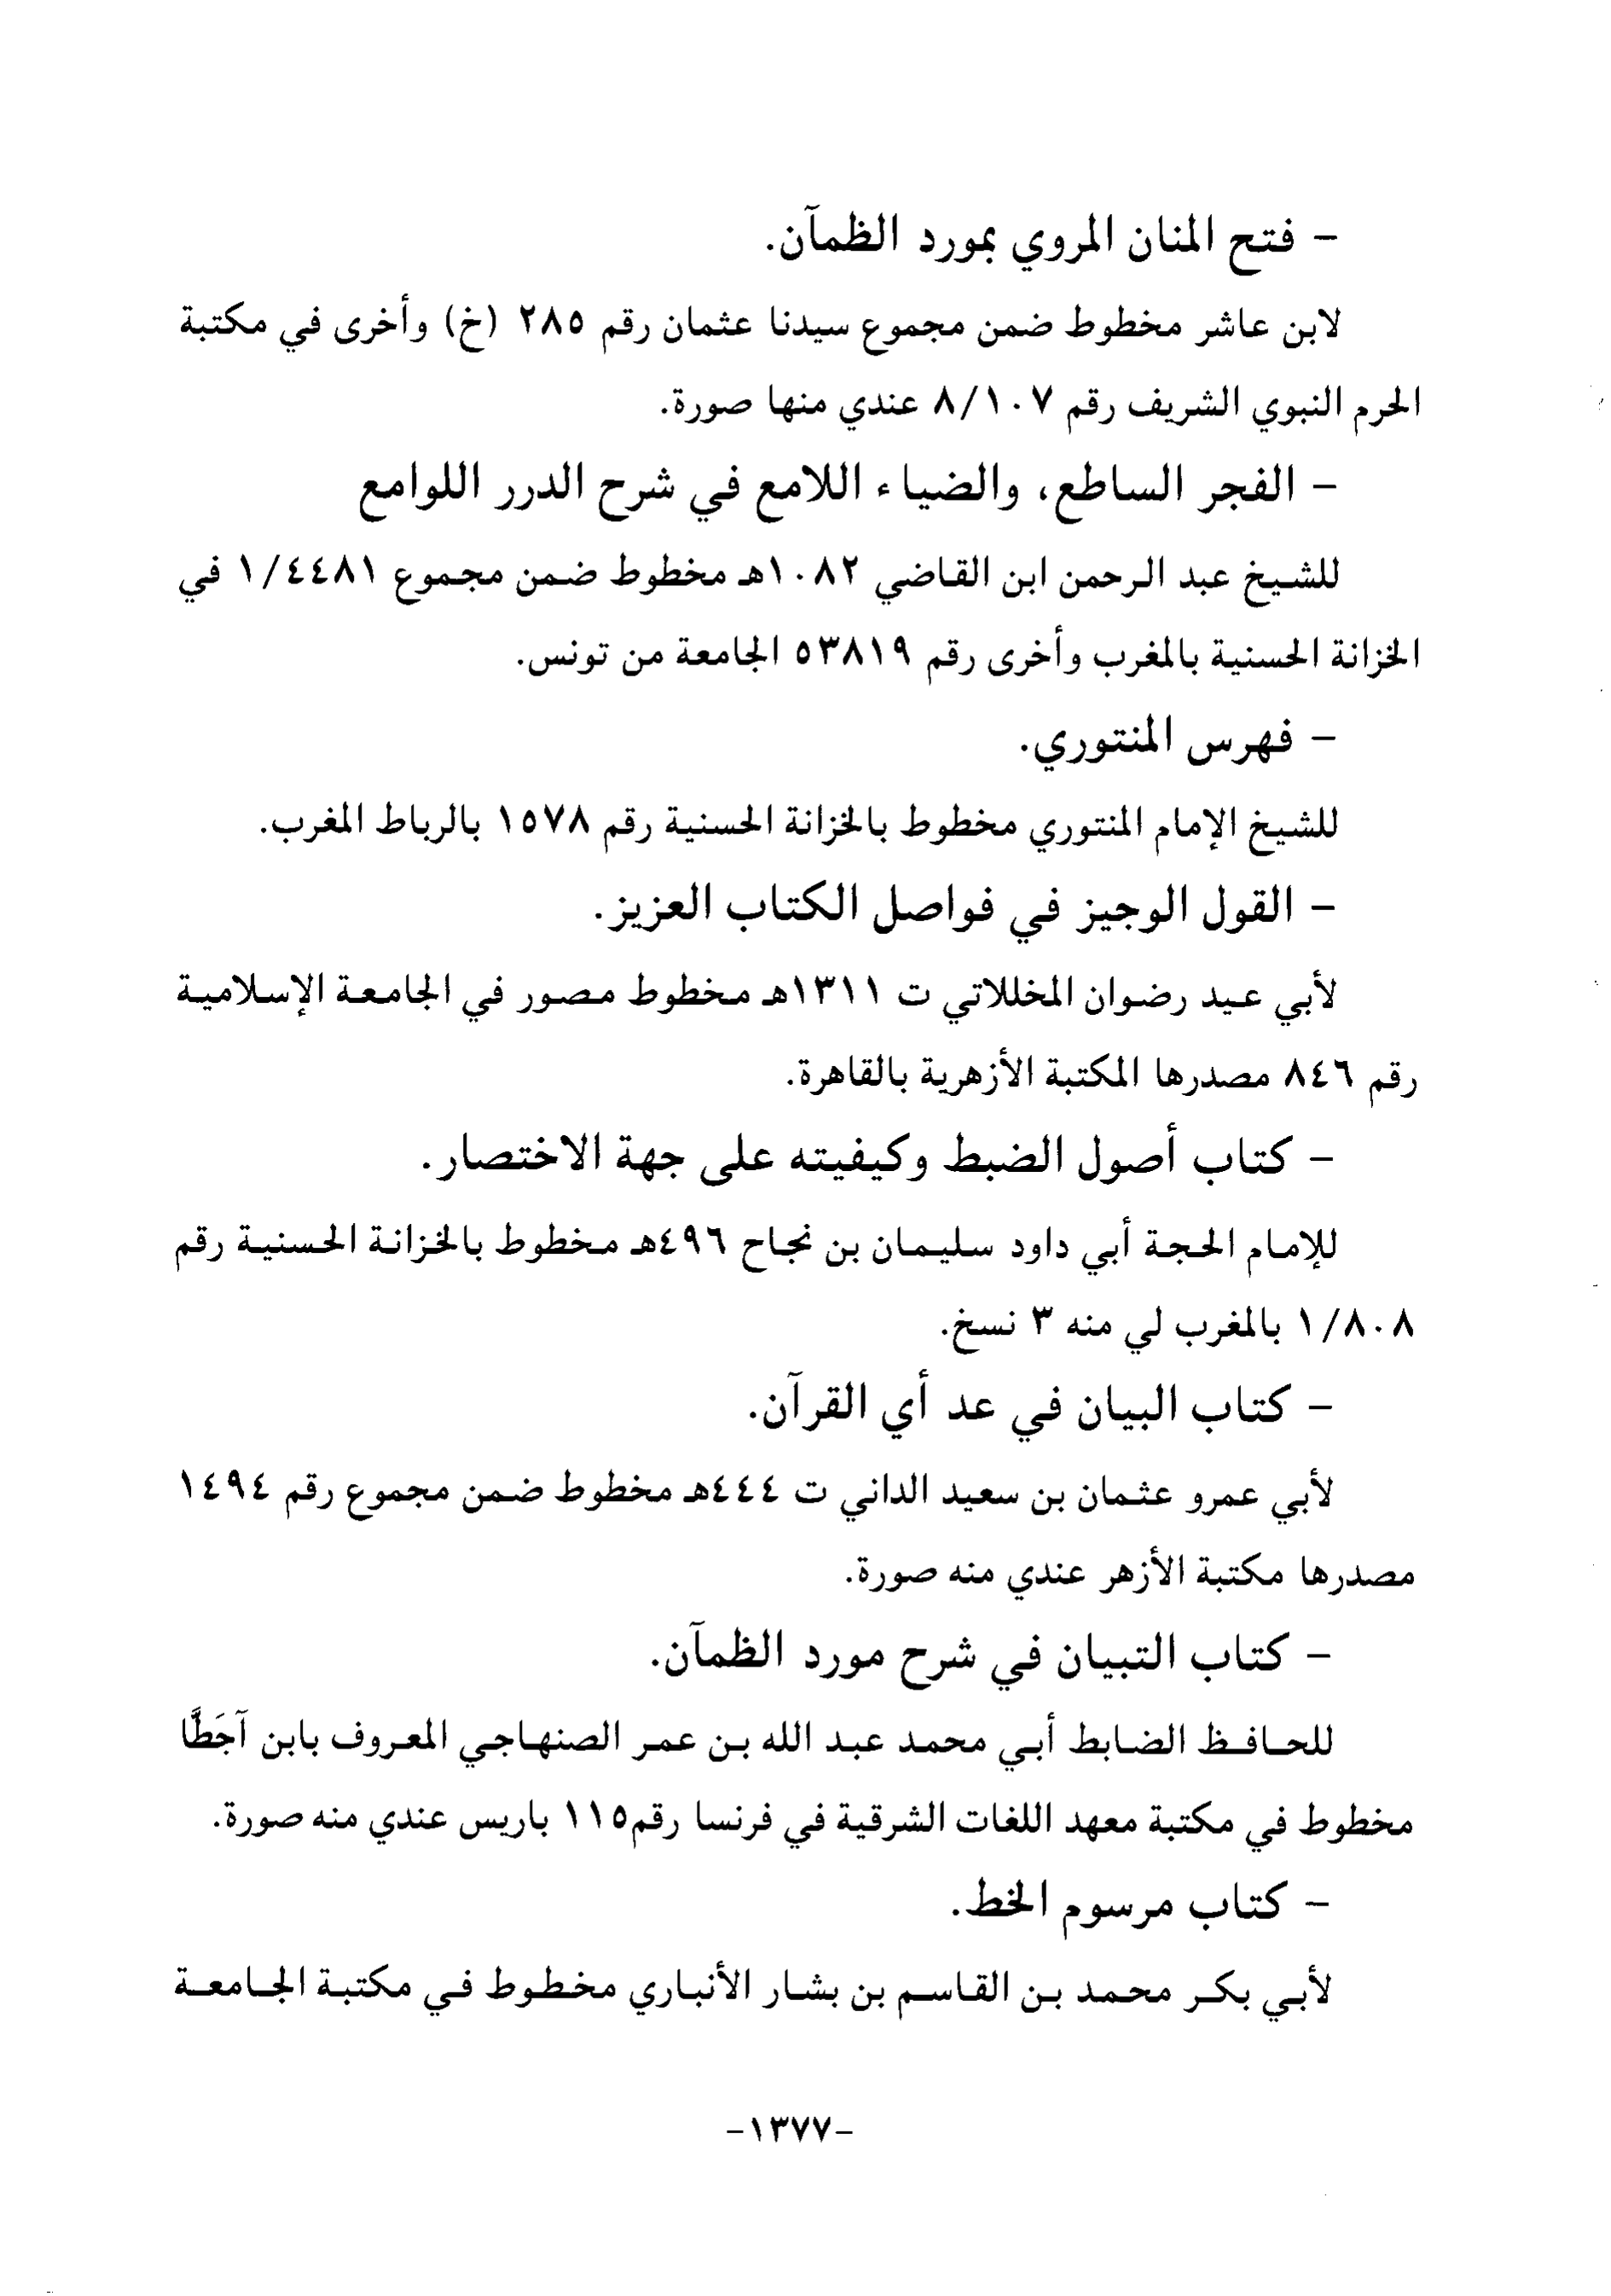 - فتح المنان المروي بمورد الظمآن.
لابن عاشر مخطوط ضمن مجموع سيدنا عثمان رقم ٢٨٥ (خ) وأخرى في مكتبة
الحرم النبوي الشريف رقم ٨/١٠٧ عندي منها صورة.
- الفجر الساطع، والضياء اللامع في شرح الدرر اللوامع
للشيخ عبد الرحمن ابن القاضي ١٠٨٢هـ مخطوط ضمن مجموع ١/٤٤٨١ في
الخزانة الحسنية بالمغرب وأخرى رقم ٥٣٨١٩ الجامعة من تونس.
- فهرس المنتوري.
للشيخ الإمام المنتوري مخطوط بالخزانة الحسنية رقم ١٥٧٨ بالرباط المغرب.
- القول الوجيز في فواصل الكتاب العزيز.
لأبي عيد رضوان المخللاتي ت ١٣١١هـ مخطوط مصور في الجامعة الإسلامية
رقم ٨٤٦ مصدرها المكتبة الأزهرية بالقاهرة.
- كتاب أصول الضبط وكيفيته على جهة الاختصار.
للإمام الحجة أبي داود سليمان بن نجاح ٤٩٦هـ مخطوط بالخزانة الحسنية رقم
١/٨٠٨ بالمغرب لي منه ٣ نسخ.
- كتاب البيان في عد أي القرآن.
لأبي عمرو عثمان بن سعيد الداني ت ٤٤٤هـ مخطوط ضمن مجموع رقم ١٤٩٤
مصدرها مكتبة الأزهر عندي منه صورة.
- كتاب التبيان في شرح مورد الظمآن.
للحافظ الضابط أبي محمد عبد الله بن عمر الصنهاجي المعروف بابن آجَطَّا
مخطوط في مكتبة معهد اللغات الشرقية في فرنسا رقم١١٥ باريس عندي منه صورة.
- كتاب مرسوم الخط.
لأبي بكر محمد بن القاسم بن بشار الأنباري مخطوط في مكتبة الجامعة
-١٣٧٧-